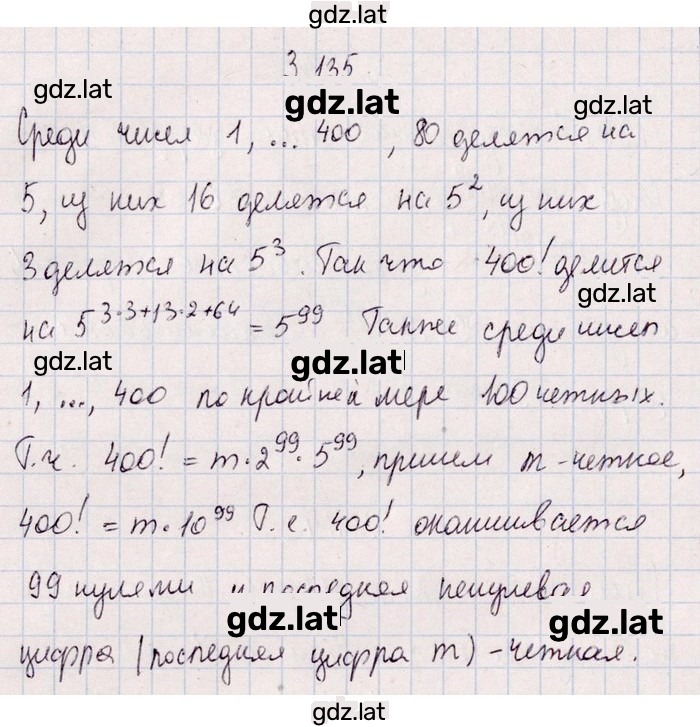 gdz.lat
3.135.
gdz.lat
gdz.lat
gdz.lat
Среди чисел 1, ... 400, 80 делятся на
5, из них 16 делятся на 5², из них
3 делятся на 5³. Так что 400! делится
gdz.lat
на 5^{3·3+13·2+64} = 5^{99} Также среди чисел
gdz.lat
gdz.lat
1, ..., 400 по крайней мере 100 четных.
Т.ч. 400! = m·2^{99}·5^{99}, причем m - четное,
400! = m·10^{99} Т.е. 400! оканчивается
99 нулями и последняя ненулевая
gdz.lat
gdz.lat
цифра (последняя цифра m) - четная.
gdz.lat